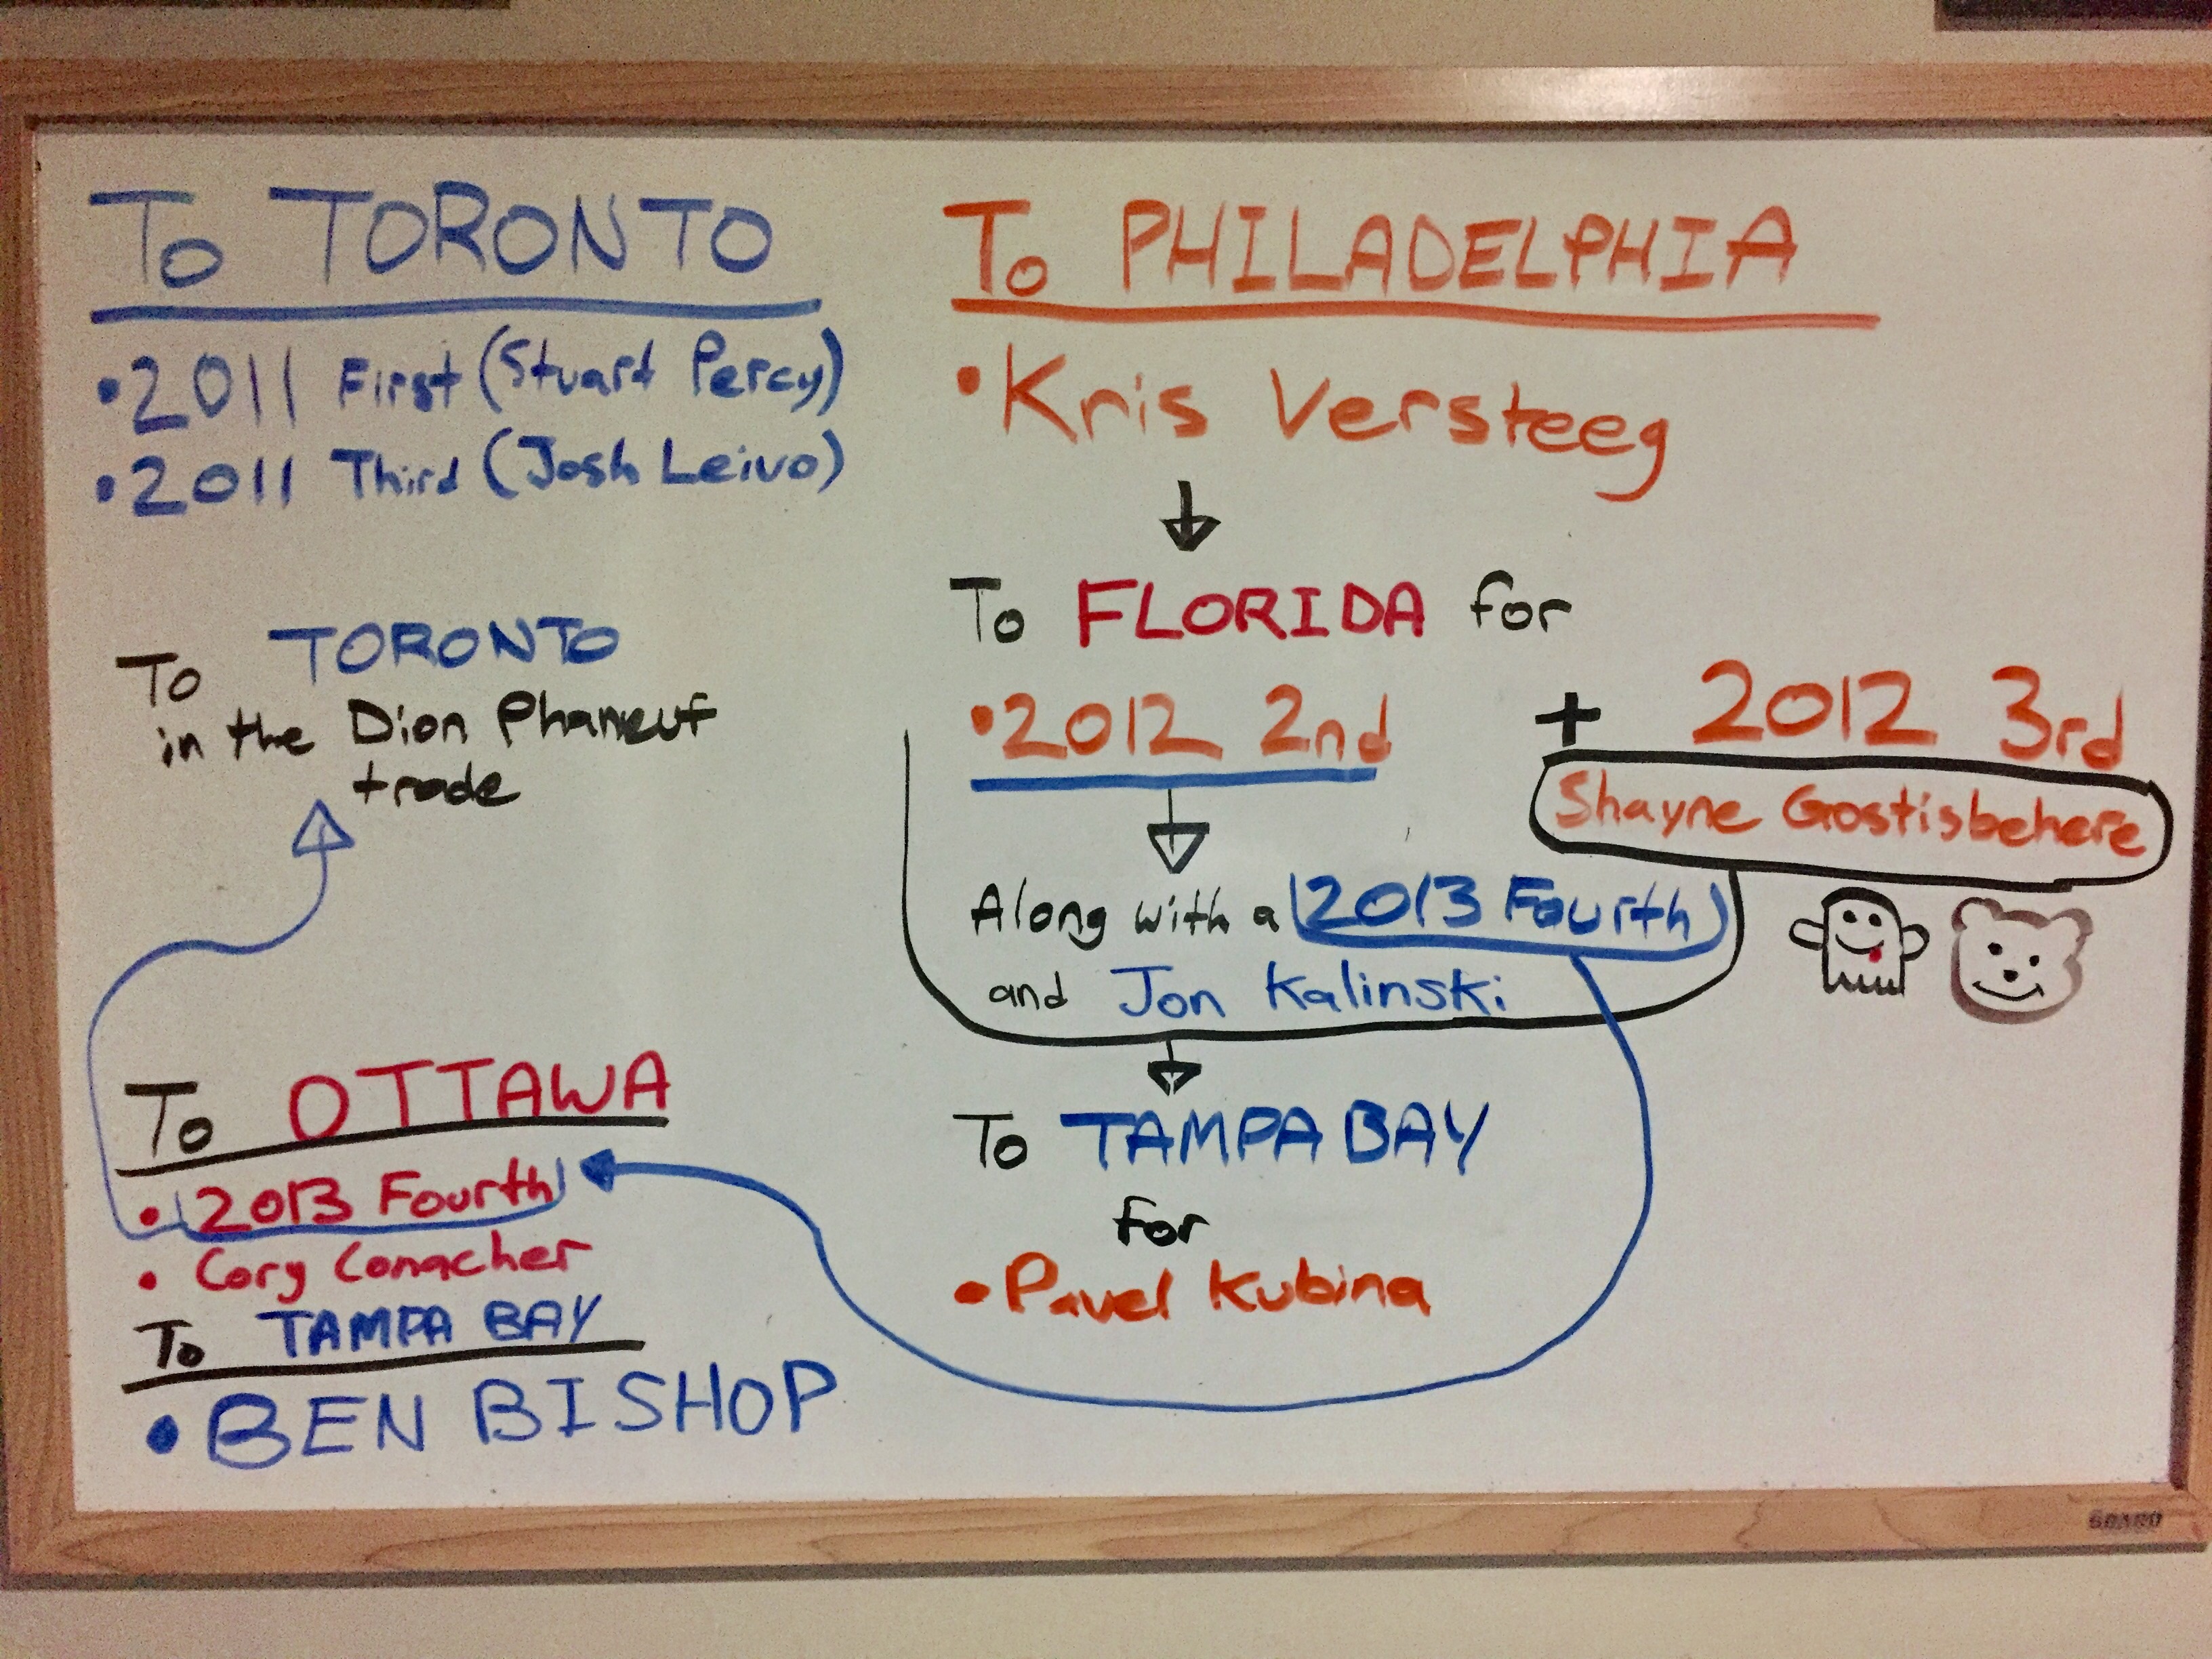 To TORONTO
•2011 First (Stuart Percy)
•2011 Third (Josh Leivo)
To TORONTO
in the Dion Phaneuf
trade
To OTTAWA
• 2013 Fourth
• Cory Conacher
To TAMPA BAY
• BEN BISHOP
To PHILADELPHIA
•Kris Versteeg
To FLORIDA for
•2012 2nd + 2012 3rd
Shayne Gostisbehere
Along with a 2013 Fourth
and Jon Kalinski
To TAMPA BAY
for
•Pavel Kubina